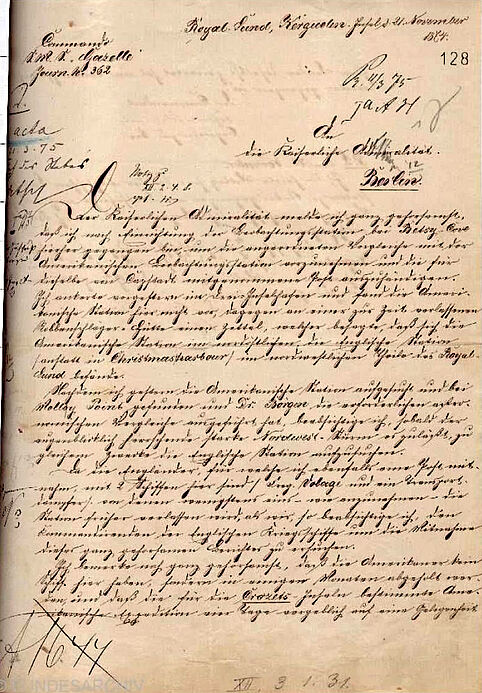 Royal-Sund, Kerguelen Insel d. 21. November
1874.
Commando
S.M.S. Gazelle
Journ. No. 362
128
R. 11/3 75
acta
3.75
An
die Kaiserliche Admiralität.
Berlin.
Der Kaiserlichen Admiralität melde ich ganz gehorsamst,
daß ich nach Einrichtung der Beobachtungsstation bei Betsy Cove
hierher gegangen bin, um die angeordneten Vergleiche mit der
Amerikanischen Beobachtungsstation vorzunehmen und die für
dieselbe von Capstadt mitgenommene Post auszuhändigen.
Ich ankerte vorgestern in den Inselhafen und fand die Ameri-
kanische Station hier nicht vor, dagegen an einer zur Zeit verlassenen
Robbenschläger-Hütte einen Zettel, welcher besagte, daß sich die
Amerikanische Station im nordöstlichen, die Englische Station
(anstatt in Christmasharbour) im nordwestlichen Theile des Royal-
Sund befände.
Nachdem ich gestern die Amerikanische Station aufgesucht und bei
Molloy Point gefunden und Dr. Börgen die erforderlichen astro-
nomischen Vergleiche ausgeführt hat, beabsichtige ich, sobald der
augenblicklich herrschende starke Nordwest-Sturm es zuläßt, zu
gleichem Zwecke die Englische Station aufzusuchen.
Da die Engländer, für welche ich ebenfalls eine Post mit-
nahm, mit 2 Schiffen hier sind (Ihrg. Volage und ein Transport-
dampfer) von denen wenigstens eins – wie anzunehmen – die
Station früher verlassen wird, als wir, so beabsichtige ich, den
Commandirenden der Englischen Kriegsschiffe um die Mitnahme
dieser ganz gehorsamen Berichte zu ersuchen.
Ich bemerke noch ganz gehorsamst, daß die Amerikaner kein
Schiff hier haben, sondern in einigen Monaten abgeholt wer-
den, und daß die für die Crozets-Inseln bestimmte Ame-
rikanische Expedition vier Tage vergeblich auf eine Gelegenheit
XII. 3. 1. 31.
BUNDESARCHIV